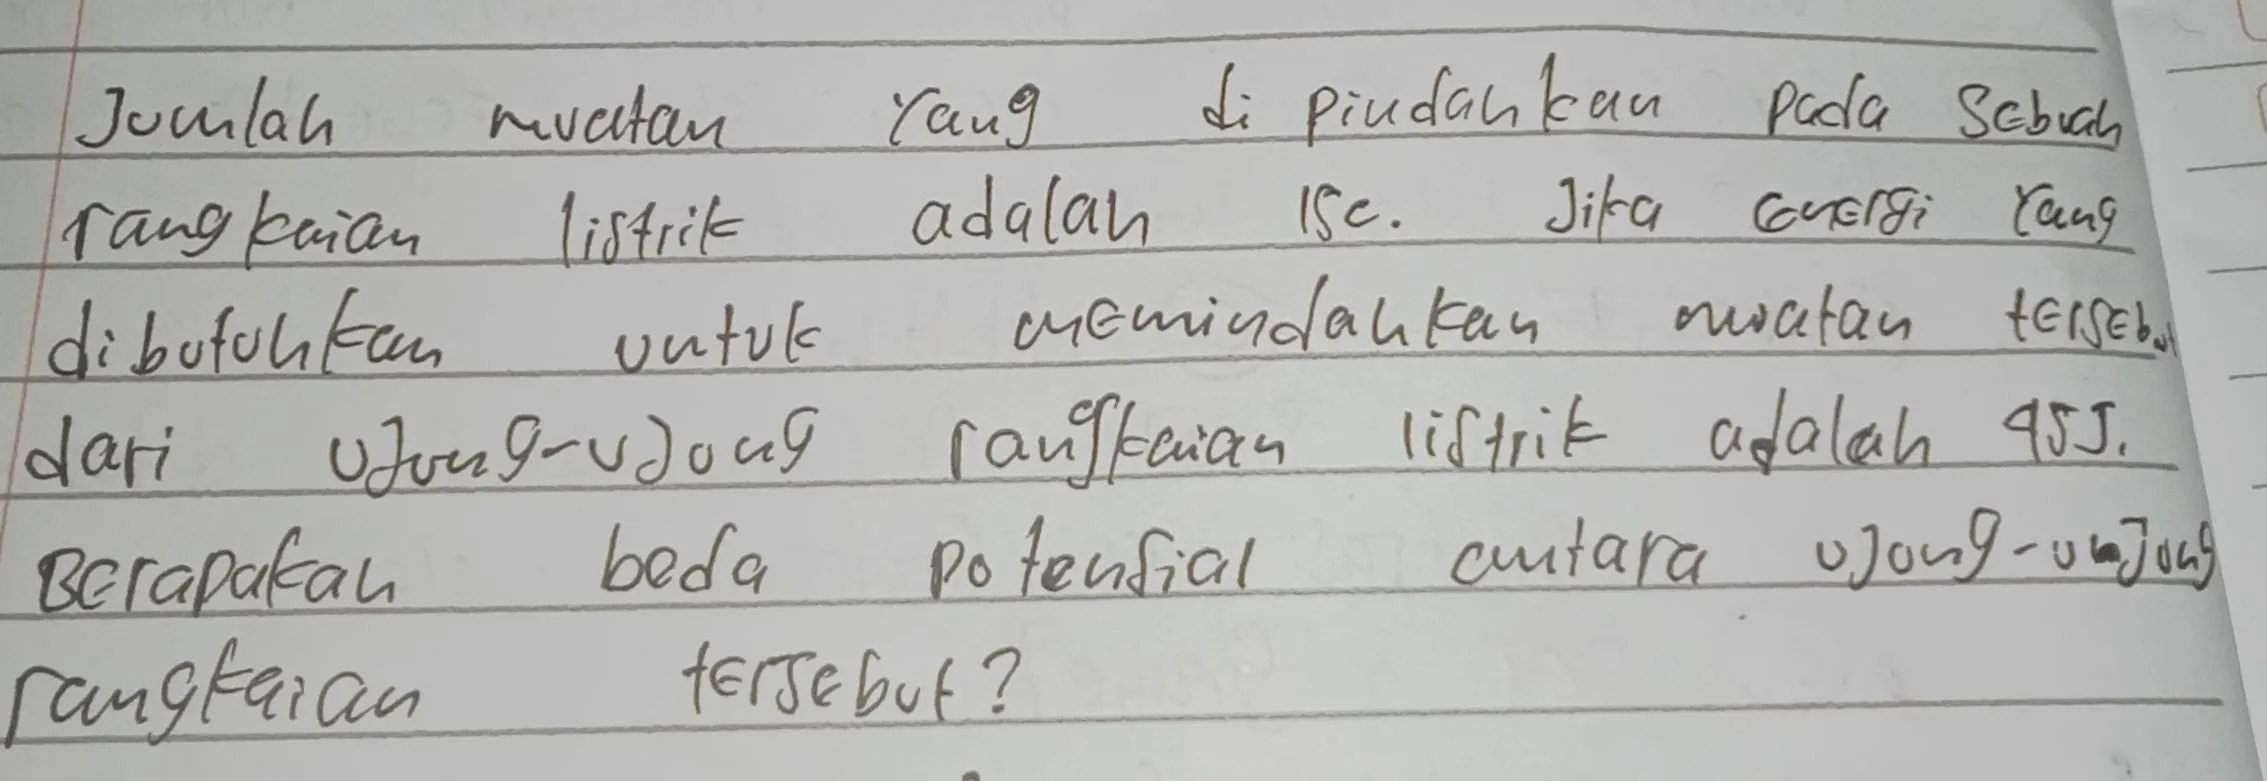 Jumlah muatan yang di pindahkan pada sebuah
rangkaian listrik adalah 15c. Jika energi yang
dibutuhkan untuk memindahkan muatan tersebut
dari ujung-ujung rangkaian listrik adalah 45J.
Berapakah beda potensial antara ujung-unjung
rangkaian tersebut?